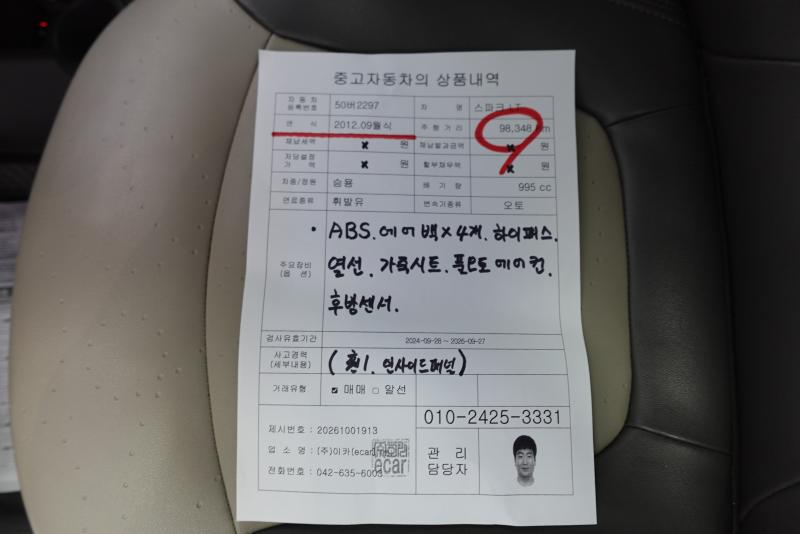 중고자동차의 상품내역
자동차 등록번호 50버2297 차 명 스파크 LT
연 식 2012.09월식 주행거리 98,348 km
체납세액 × 원 체납벌과금액 × 원
저당설정 가액 × 원 할부채무액 × 원
차종/정원 승용 배기량 995 cc
연료종류 휘발유 변속기종류 오토
주요장비 (옵션)
• ABS. 에어백×4개. 하이패스.
열선. 가죽시트. 풀오토 에어컨.
후방센서.
검사유효기간 2024-09-28 ~ 2026-09-27
사고경력 (세부내용) (환1. 인사이드패널)
거래유형 ☑ 매매 □ 알선
010-2425-3331
제시번호 : 20261001913
업 소 명 : (주)이카(ecar)
전화번호 : 042-635-6003
관 리
담당자
ecar